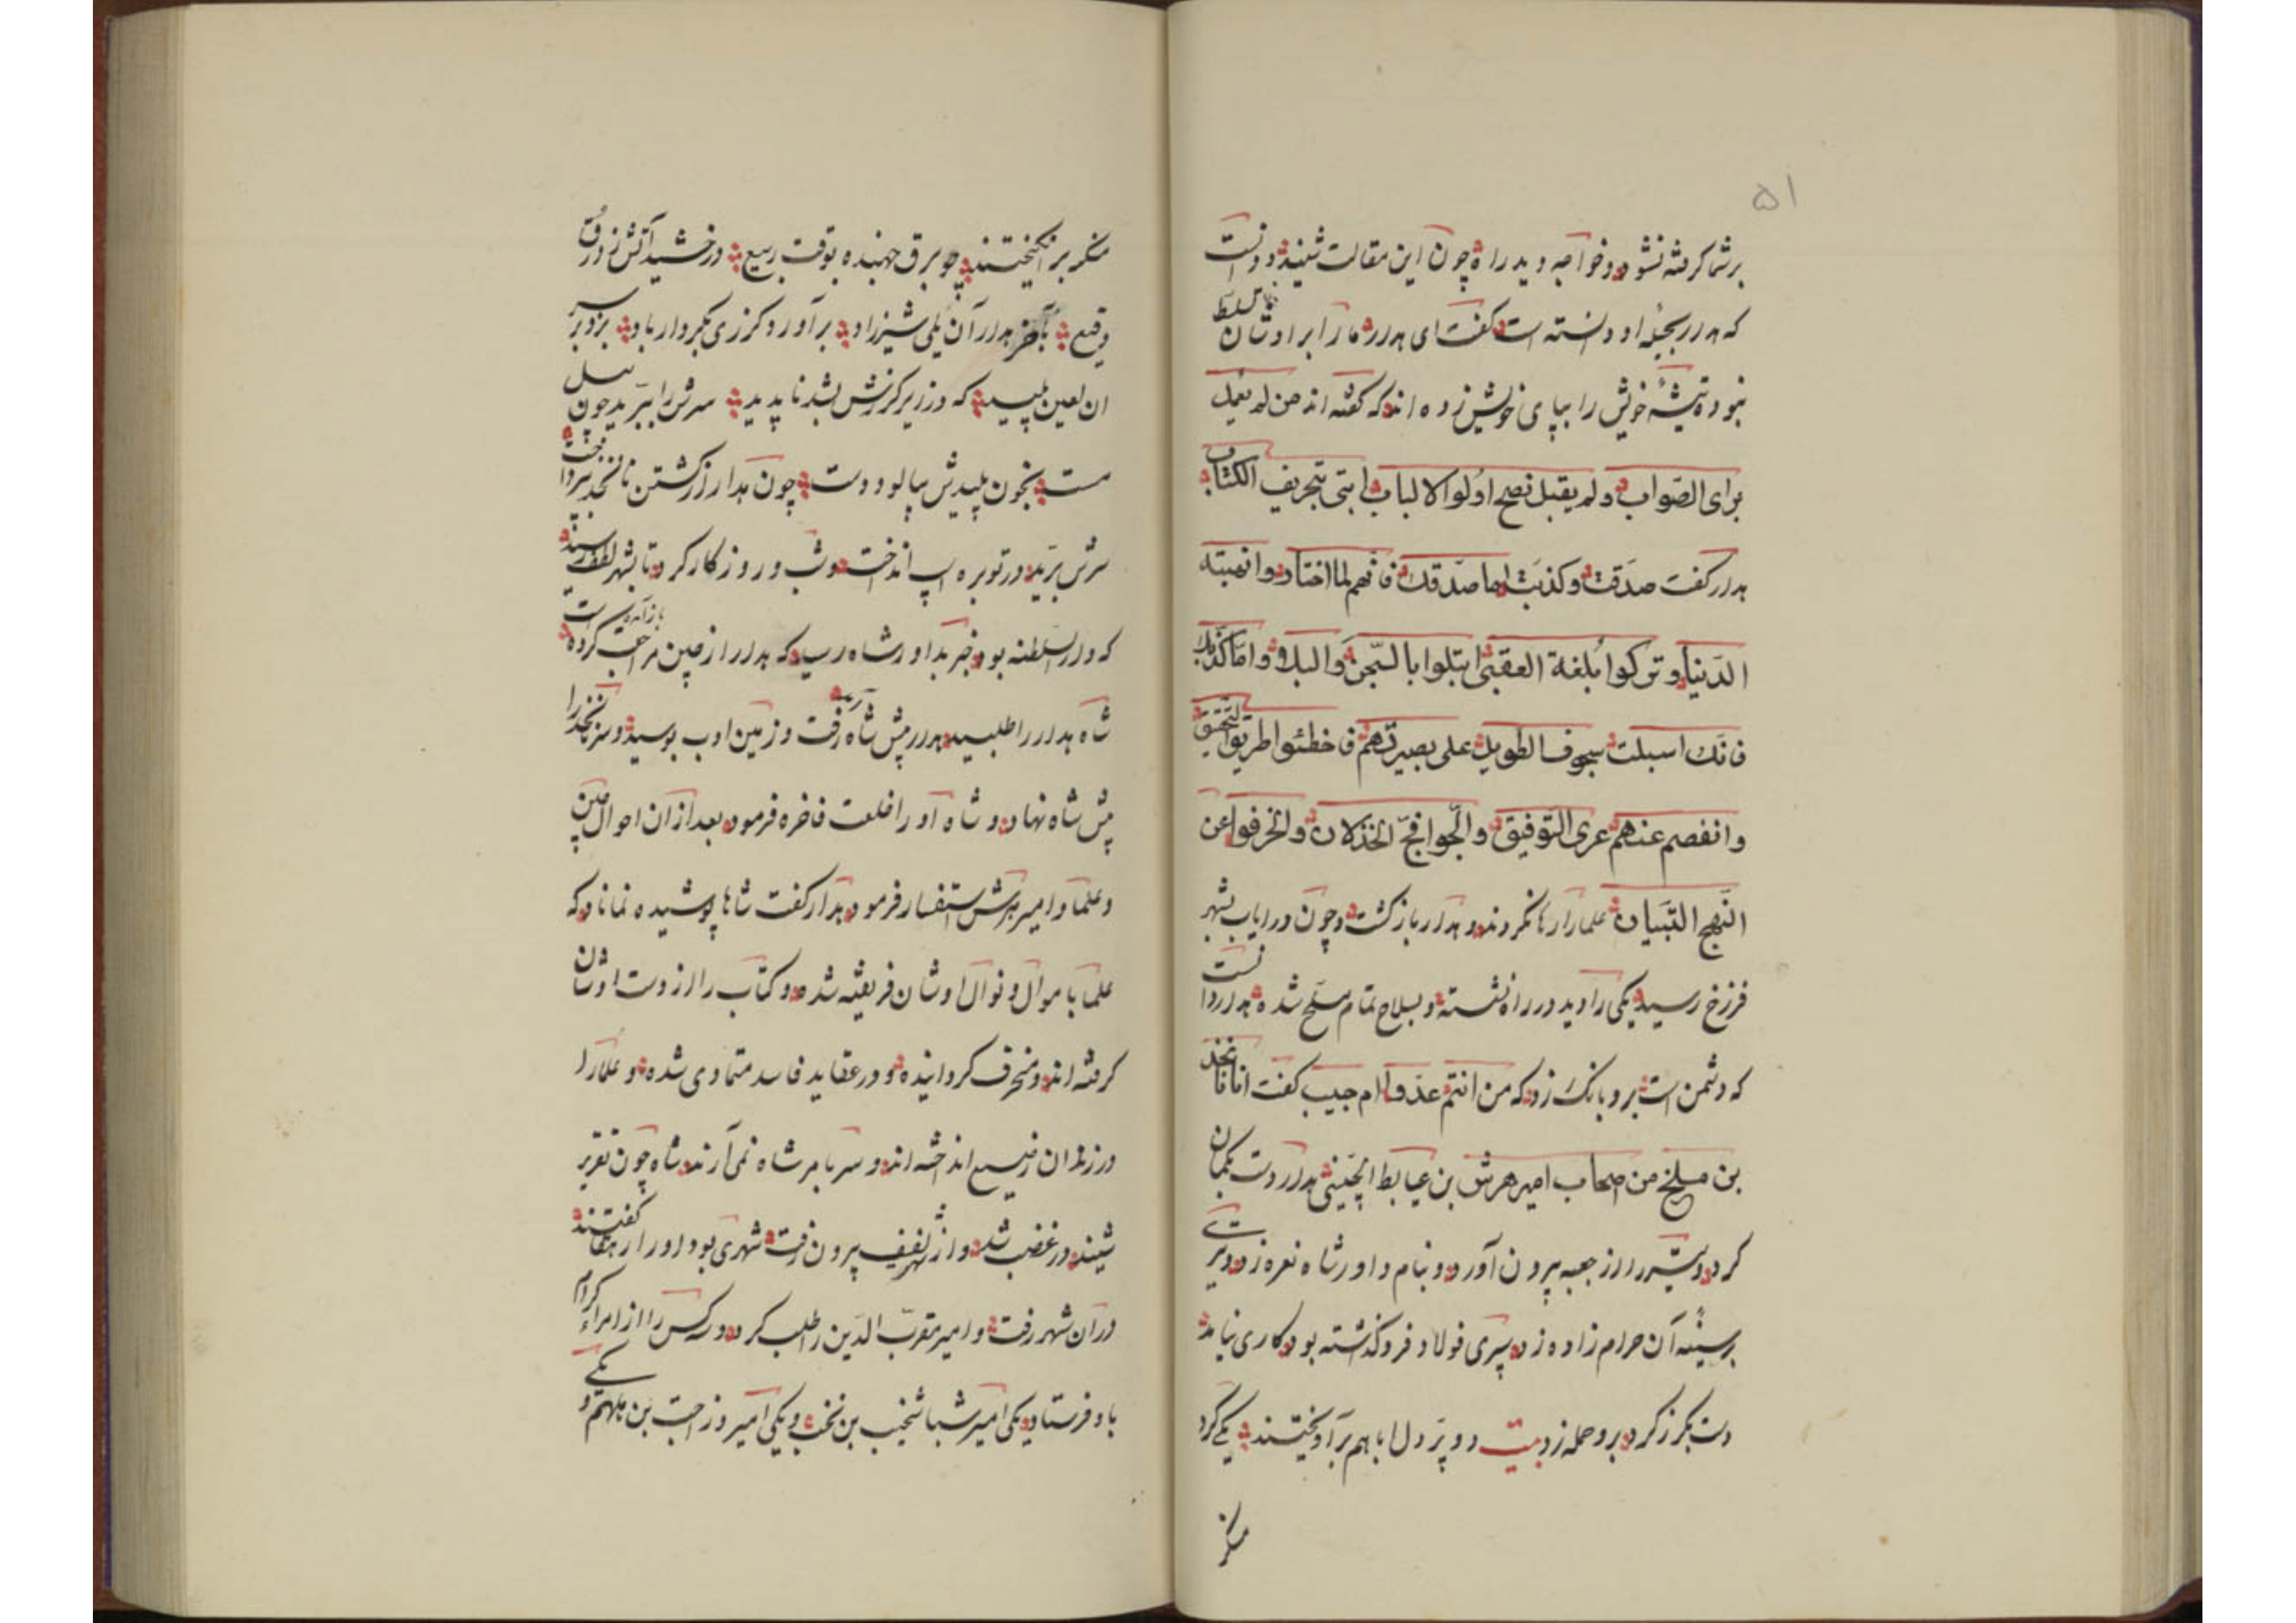 ۵۱
برشما گرفته نشود و خواجه دید راه چون این مقالت شنید و دانست
که هدار بحیله او دانسته است گفت ای هدار ما را بر اوشان تسلط
نبود تیشهٔ خویش را بپای خویش زده اند که گفته اند من لم یعمل
برای الصّواب ولم یقبل نصح اولوا الالباب ابتی بتحریف الکتاب
هدار گفت صدقت وکذبت اما صدّقک فانهم لما اختار وانهبته
الدّنیا وترکوا بلغة العقبی ابتلوا بالسّجن والبلاء واما کذّبک
فانّک اسبلت سجوف الطویل علی بصیرتهم فاخطئوا طریق التحقیق
وانفصم عندهم عری التّوفیق والّجوا فجّ الخذلان وانحرفوا عن
النّهج التّبیان علما را رها نکردند و هدار بازگشت و چون در ایاب بشهر
فرزخ رسید یکی را دید در راه نشسته و بسلاح تمام مسلّح شده هدار دانست
که دشمن است برو بانگ زد که من انتم عدوّ ام حبیب گفت انا نخذ
بن ملیخ من اصحاب امیر هرش بن عیابط الچینی هدار دست بکمان
کرد و تیر را از جعبه بیرون آورد و بنام داورشاه نعره زد و تیری
برسینهٔ آن حرام زاده زد سپری فولاد فروگذاشته بود کاری نیامد
دست بگرز کرد برو حمله زد بیت دو پر دل با هم برآویختند یکی گرد
منکر
منکر برانگیختند چو برق جهنده بوقت ربیع درخشید آتش ز درق
وقیع بآخر هدار آن یلی شیرزاد برآورد گرزی بکردار باد بزد بر سر
ان لعین پلید که در زیر گرزش بشد ناپدید سرش را ببرید چون پیل
مست بخون پلیدش بیالود دست چون هدار از کشتن نانخذ بپرداخت
سرش برید در توبره اسپ انداخت و شب و روز کار کرد تا بشهر لطفور رسید
که دار السلطنه بود خبر بداورشاه رسید که هدار از چین مراجعت کرده باز آمده است
شاه هدار را طلبید هدار پیش شاه رفت و زمین ادب بوسید و سر نانخذ را
پیش شاه نهاد و شاه او را خلعت فاخره فرمود بعد از آن احوال چین
و علما و امیر هرش استفسار فرمود هدار گفت شاها پوشیده نماناد که
علما باموال و نوال اوشان فریفته شده و کتاب را از دست اوشان
گرفته اند و منحرف گردانیده و در عقاید فاسد متمادی شده و علما را
در زندان وسیع انداخته اند و سر بامر شاه نمی آرند شاه چون تقریر
شنید در غضب شد و از شهر لفیف بیرون رفت شهری بود او را رهقا گفتند
در آن شهر رفت و امیر مقرب الدّین را طلب کرد و دو کس را از امراء کرام
باو فرستاد یکی امیر شباشخیب بن نخب و یکی امیر وزاحب بن بلهم و یکی